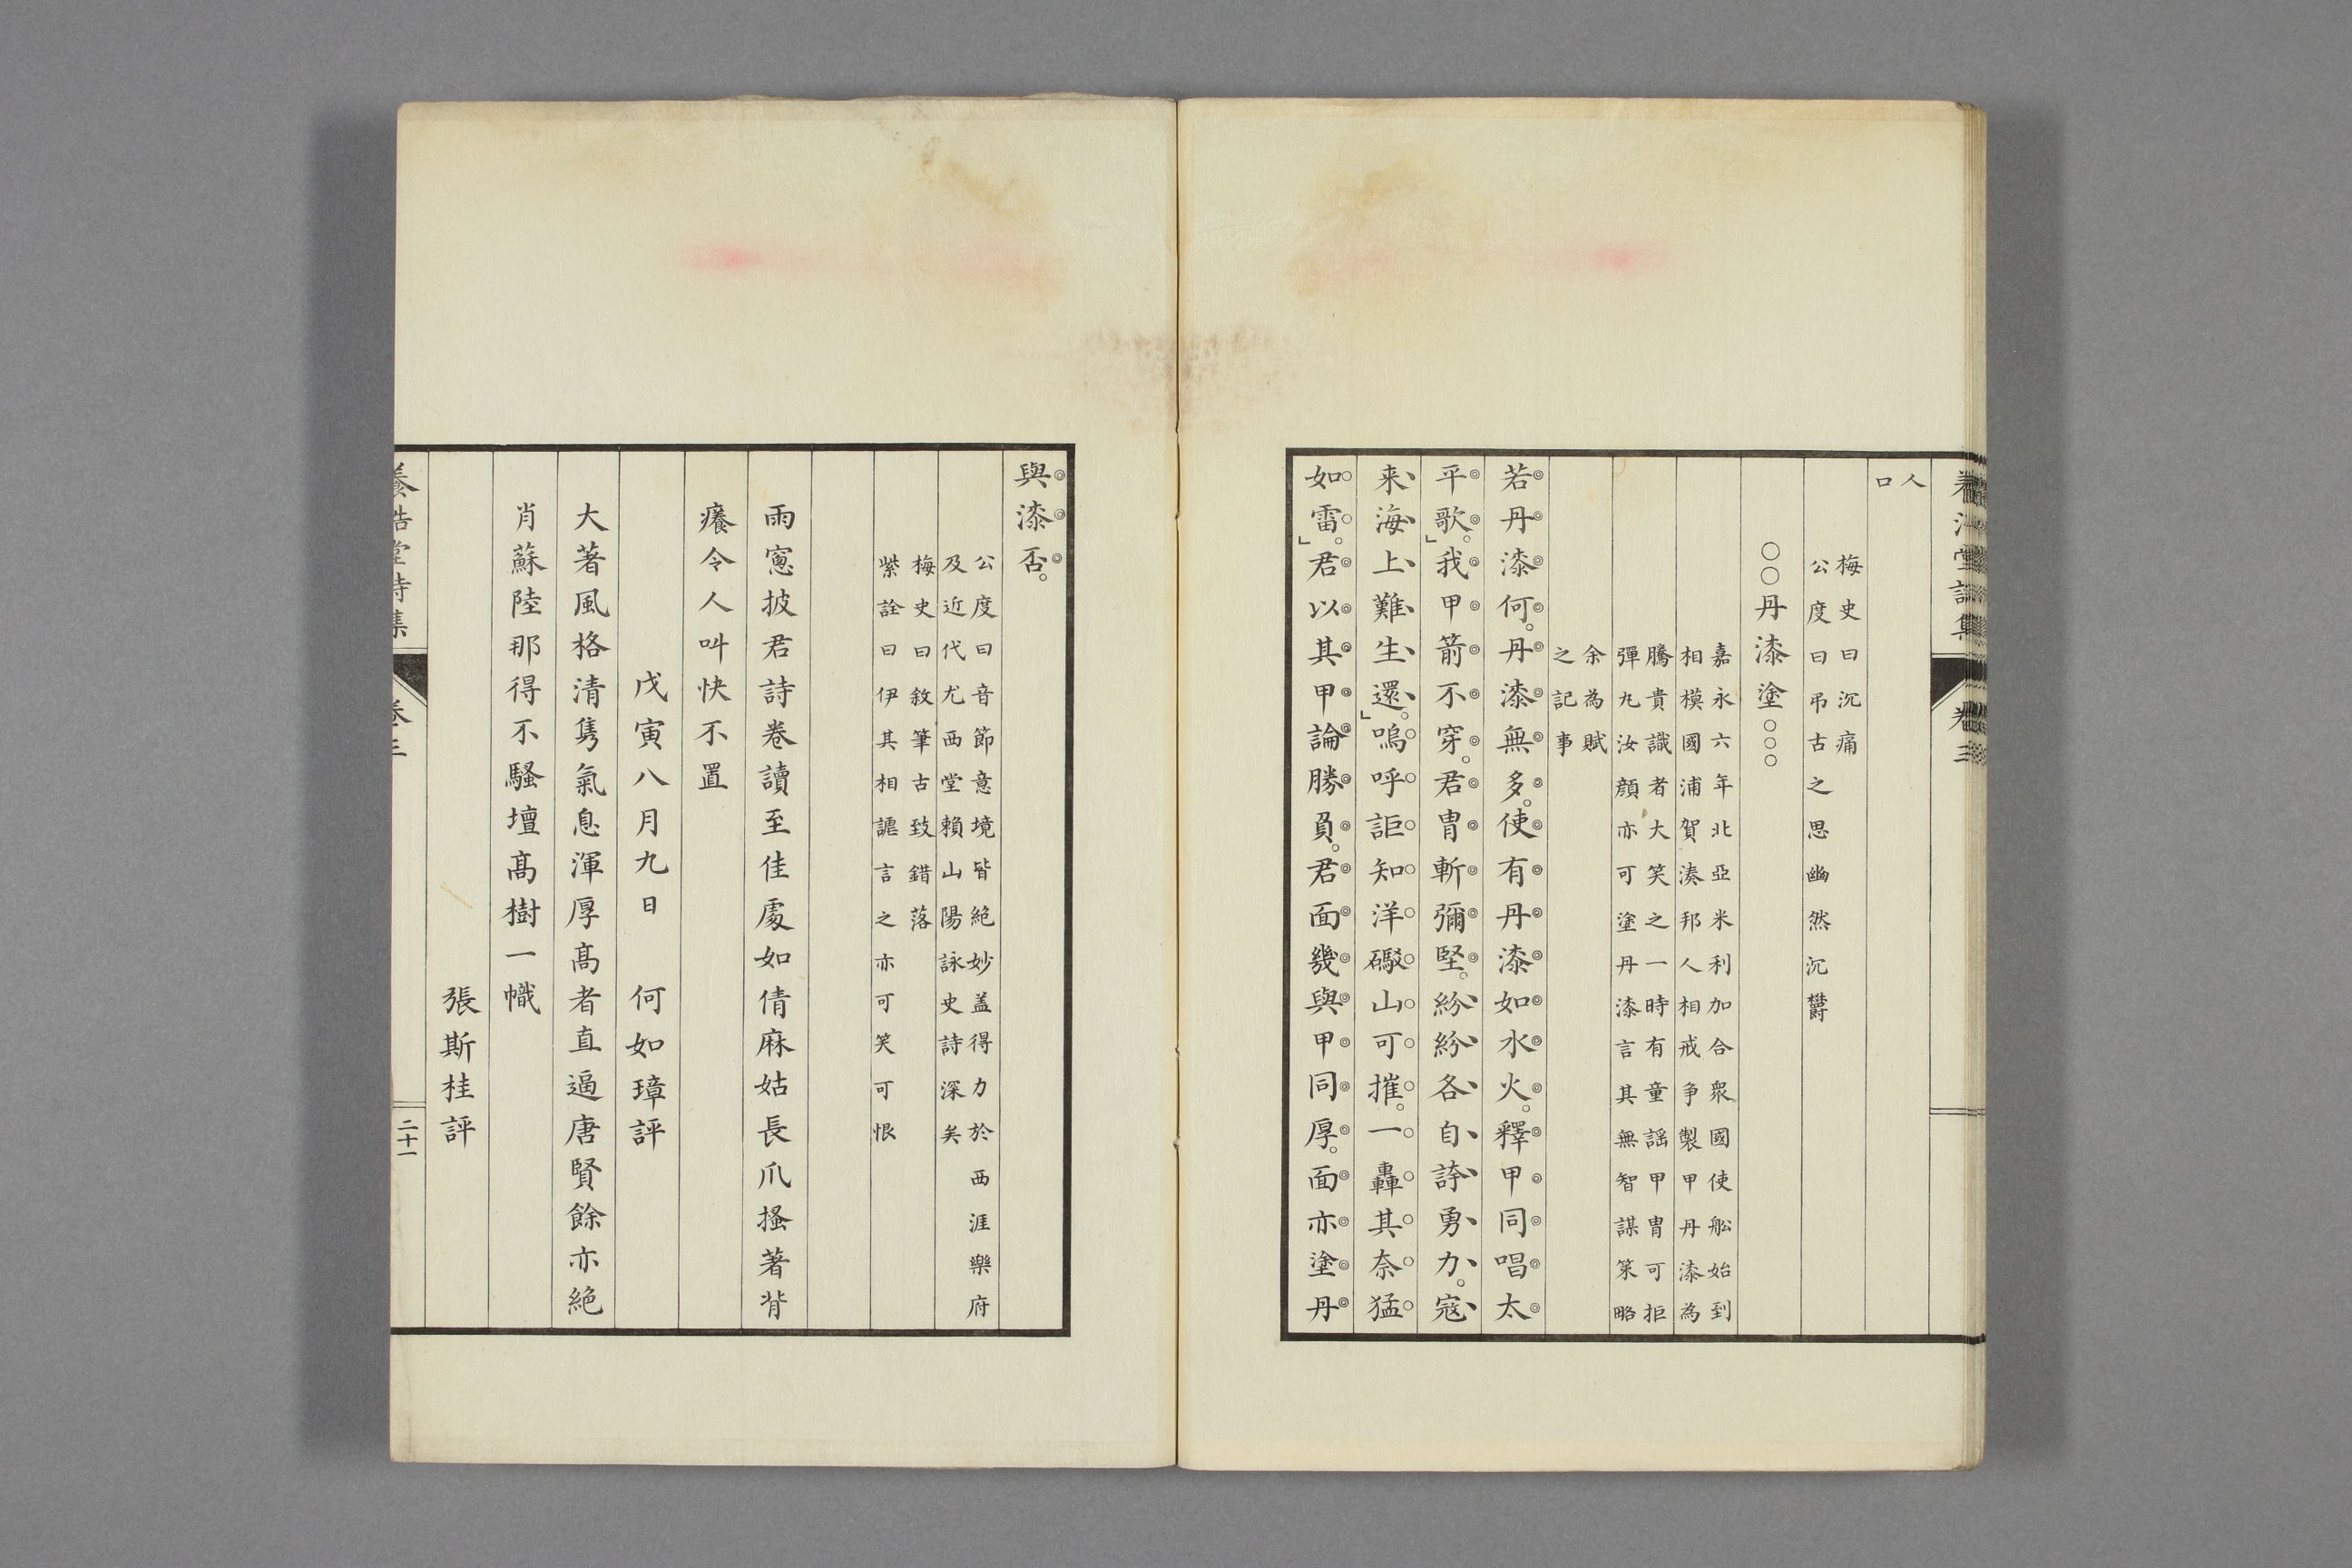 人
口
梅史曰沉痛
公度曰弔古之思幽然沉欝
○○丹漆塗○○○
嘉永六年北亞米利加合衆國使舩始到
相模國浦賀湊邦人相戒争製甲丹漆為
騰貴識者大笑之一時有童謡甲冑可拒
彈丸汝顔亦可塗丹漆言其無智謀策略
余為賦
之記事
若丹漆何。丹漆無多。使有丹漆如水火。釋甲同唱太
平歌。」我甲箭不穿。君冑斬彌堅。紛紛各自誇勇力。寇
来海上難生還。」嗚呼詎知洋礟山可摧。一轟其奈猛
如雷。」君以其甲論勝負。君面幾與甲同厚。面亦塗丹
與漆否。
公度曰音節意境皆絶妙盖得力於西涯樂府
及近代尤西堂賴山陽詠史詩深矣
梅史曰敘筆古致錯落
紫詮曰伊其相謔言之亦可笑可恨
雨窻披君詩卷讀至佳處如倩麻姑長爪搔著背
癢令人叫快不置
戊寅八月九日　何如璋評
大著風格清雋氣息渾厚髙者直逼唐賢餘亦絶
肖蘇陸那得不騷壇髙樹一幟
張斯桂評
養浩堂詩集
卷三
二十一